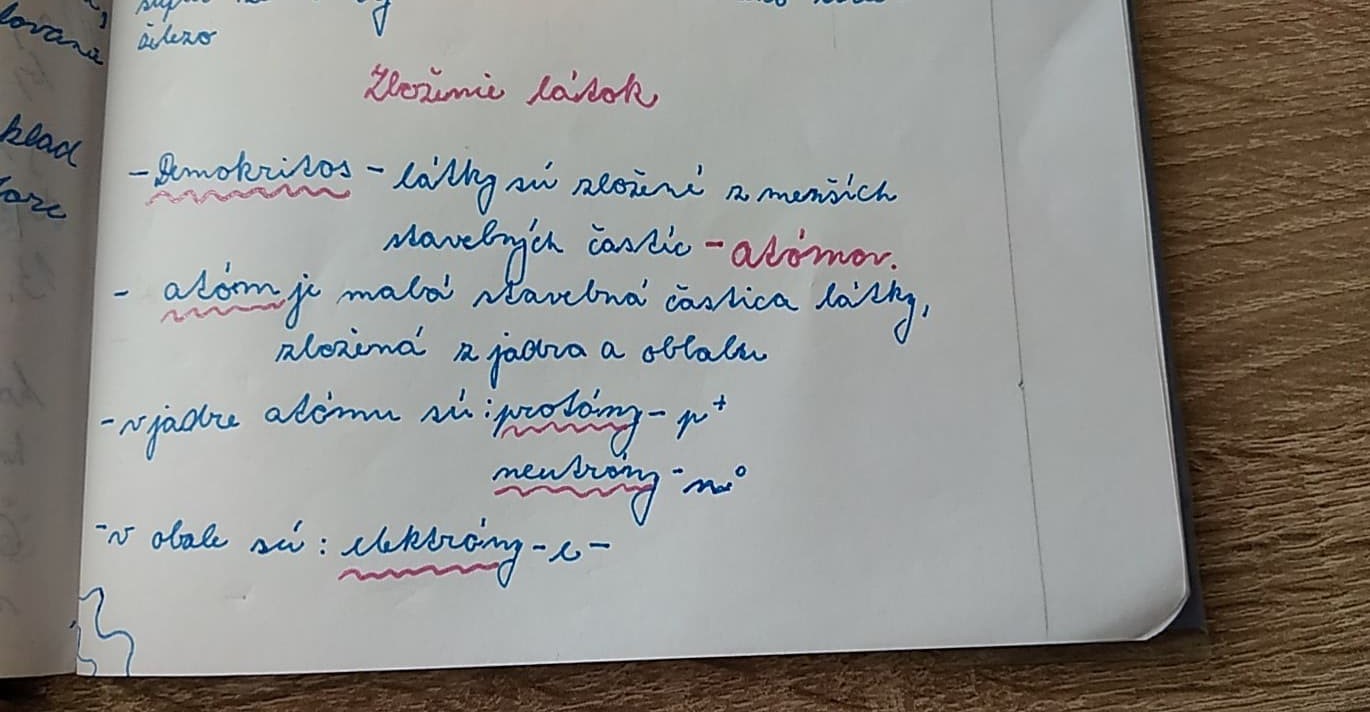 železo
Zloženie látok
klad
- Demokritos - látky sú zložené z menších
stavebných častíc - atómov.
- atóm je malá stavebná častica látky,
zložená z jadra a oblaku
- v jadre atómu sú : protóny - p⁺
neutróny - n⁰
- v obale sú : elektróny - e⁻